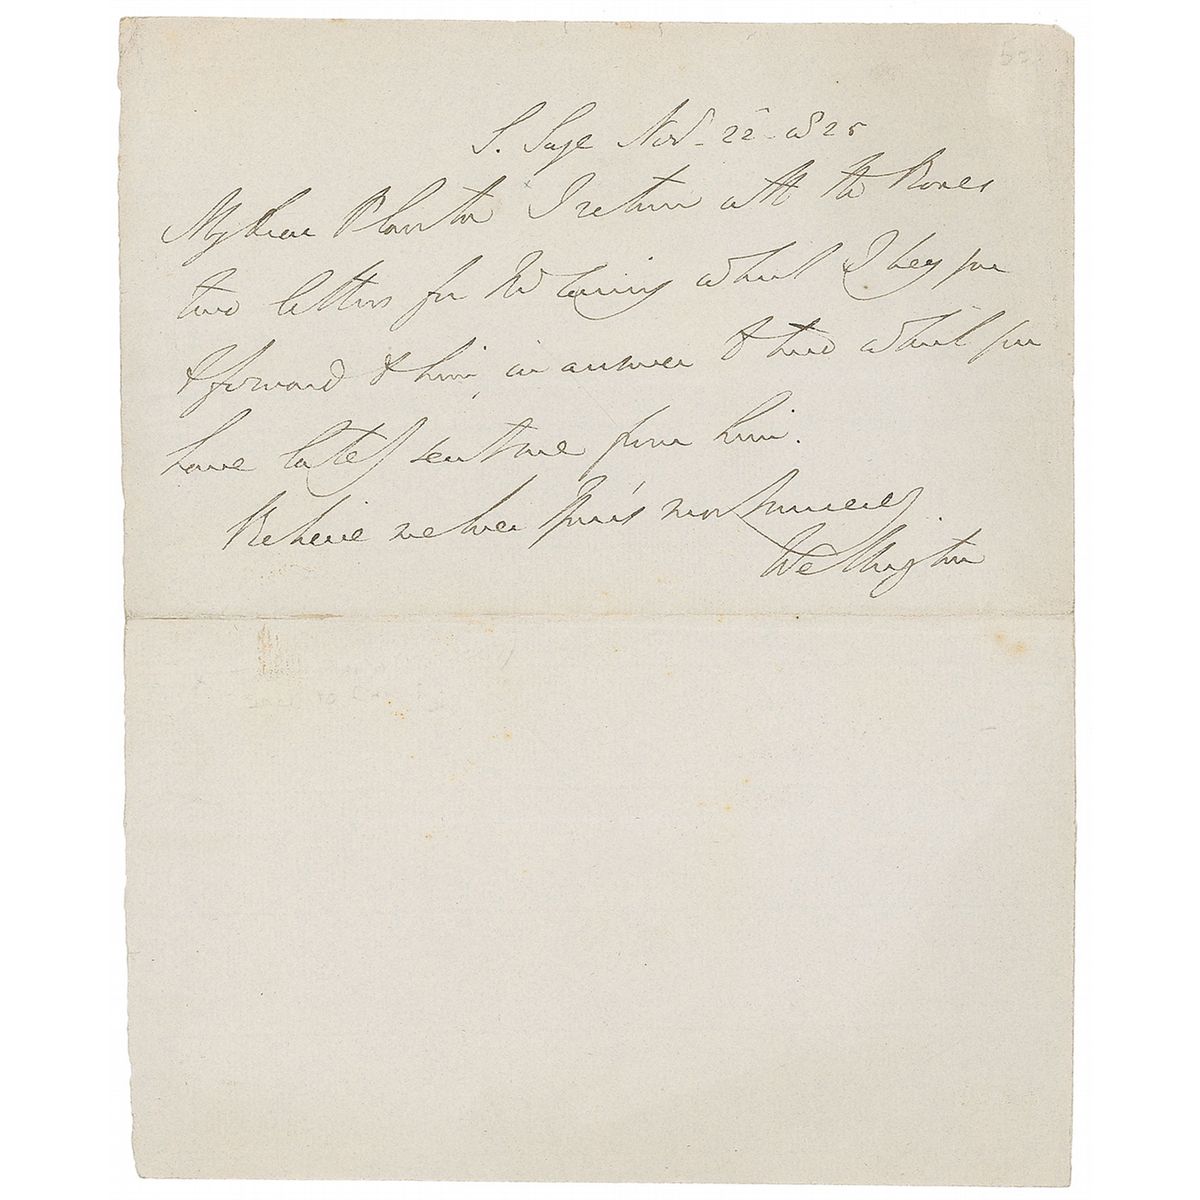 S. Saye Nov. 22 - 1825
My dear Planta I return with the Boxes
two letters for Ld. Canning which I beg you
to forward to him, in answer to two which you
have lately sent me from him.
Believe me Ever Yours most sincerely
Wellington